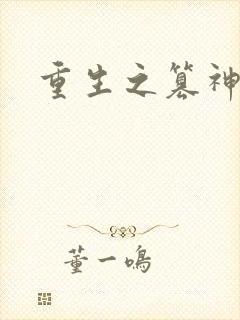 重生之篡神
董一鸣